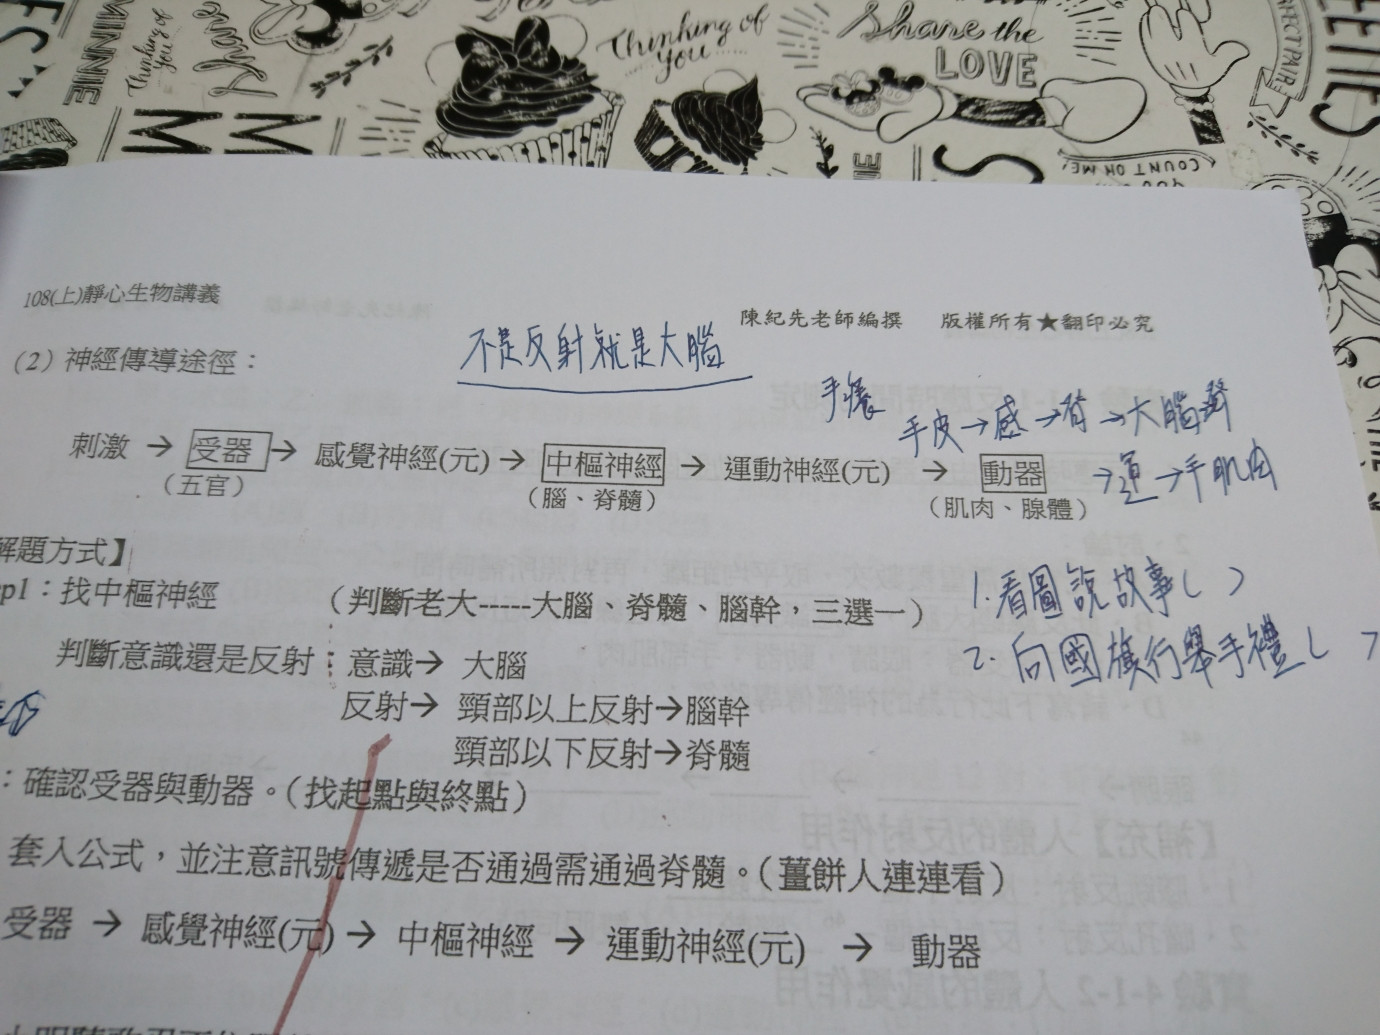 MINNIE
Thinking of you
Thinking of
you
Share the
LOVE
PERFECT PAIR
COUNT ON ME!
108(上)靜心生物講義
陳紀先老師編撰 版權所有★翻印必究
不是反射就是大腦
(2) 神經傳導途徑：
手癢
手皮→感→脊→大腦
刺激 → 受器 → 感覺神經(元) → 中樞神經 → 運動神經(元) → 動器 →運→手肌肉
(五官) (腦、脊髓) (肌肉、腺體)
解題方式】
ep1：找中樞神經 (判斷老大------大腦、脊髓、腦幹，三選一)
1.看圖說故事( )
判斷意識還是反射：意識→ 大腦
2. 向國旗行舉手禮( )
反射→ 頸部以上反射→腦幹
頸部以下反射→脊髓
：確認受器與動器。(找起點與終點)
套入公式，並注意訊號傳遞是否通過需通過脊髓。(薑餅人連連看)
受器 → 感覺神經(元) → 中樞神經 → 運動神經(元) → 動器